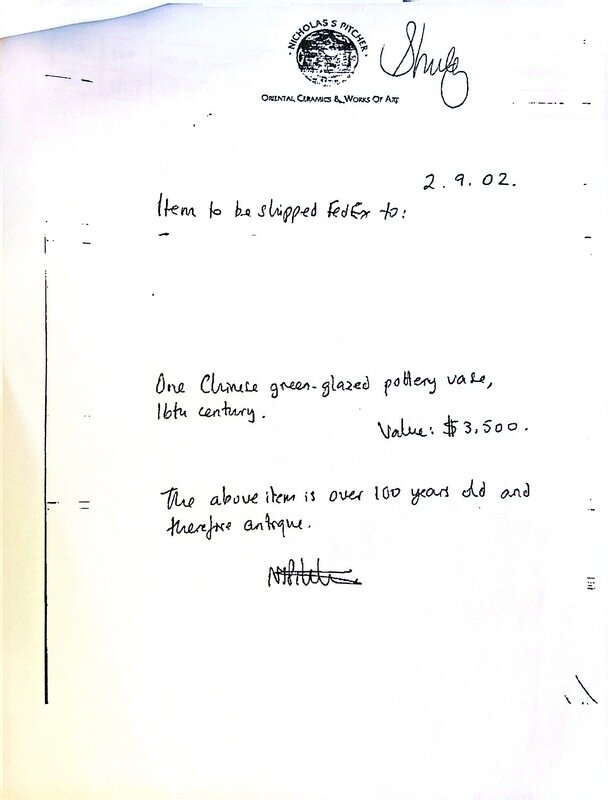 NICHOLAS S PITCHER
ORIENTAL CERAMICS & WORKS OF ART
2.9.02.
Item to be shipped FedEx to:
One Chinese green-glazed pottery vase,
16th century.
Value: $3,500.
The above item is over 100 years old and
therefore antique.